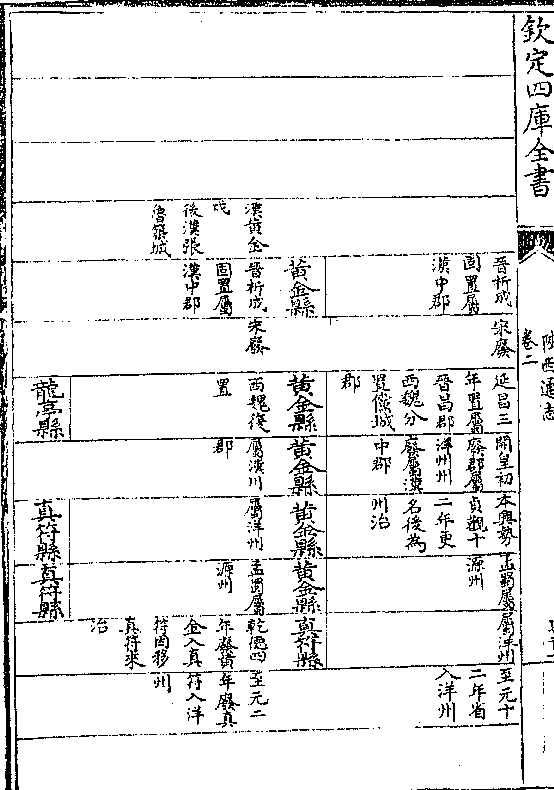 欽定四庫全書
陜西通志
卷二
漢黃金
戍
後漢張
魯築城
晉析成
固置屬
漢中郡
黃金縣
晉析成
固置屬
漢中郡
宋廢
宋廢
延昌三
年置屬
晉昌郡
西魏分
置儻城
郡
黃金縣
西魏復
置
龍亭縣
開皇初
廢郡屬
洋州州
廢屬漢
中郡
黃金縣
屬漢川
郡
本興勢
貞觀十
二年更
名後為
州治
黃金縣
屬洋州
真符縣
孟蜀屬
源州
黃金縣
孟蜀屬
源州
真符縣
屬洋州
真符縣
乾德四
年廢黃
金入真
符因移
真符來
治
至元十
二年省
入洋州
至元二
年廢真
符入洋
州